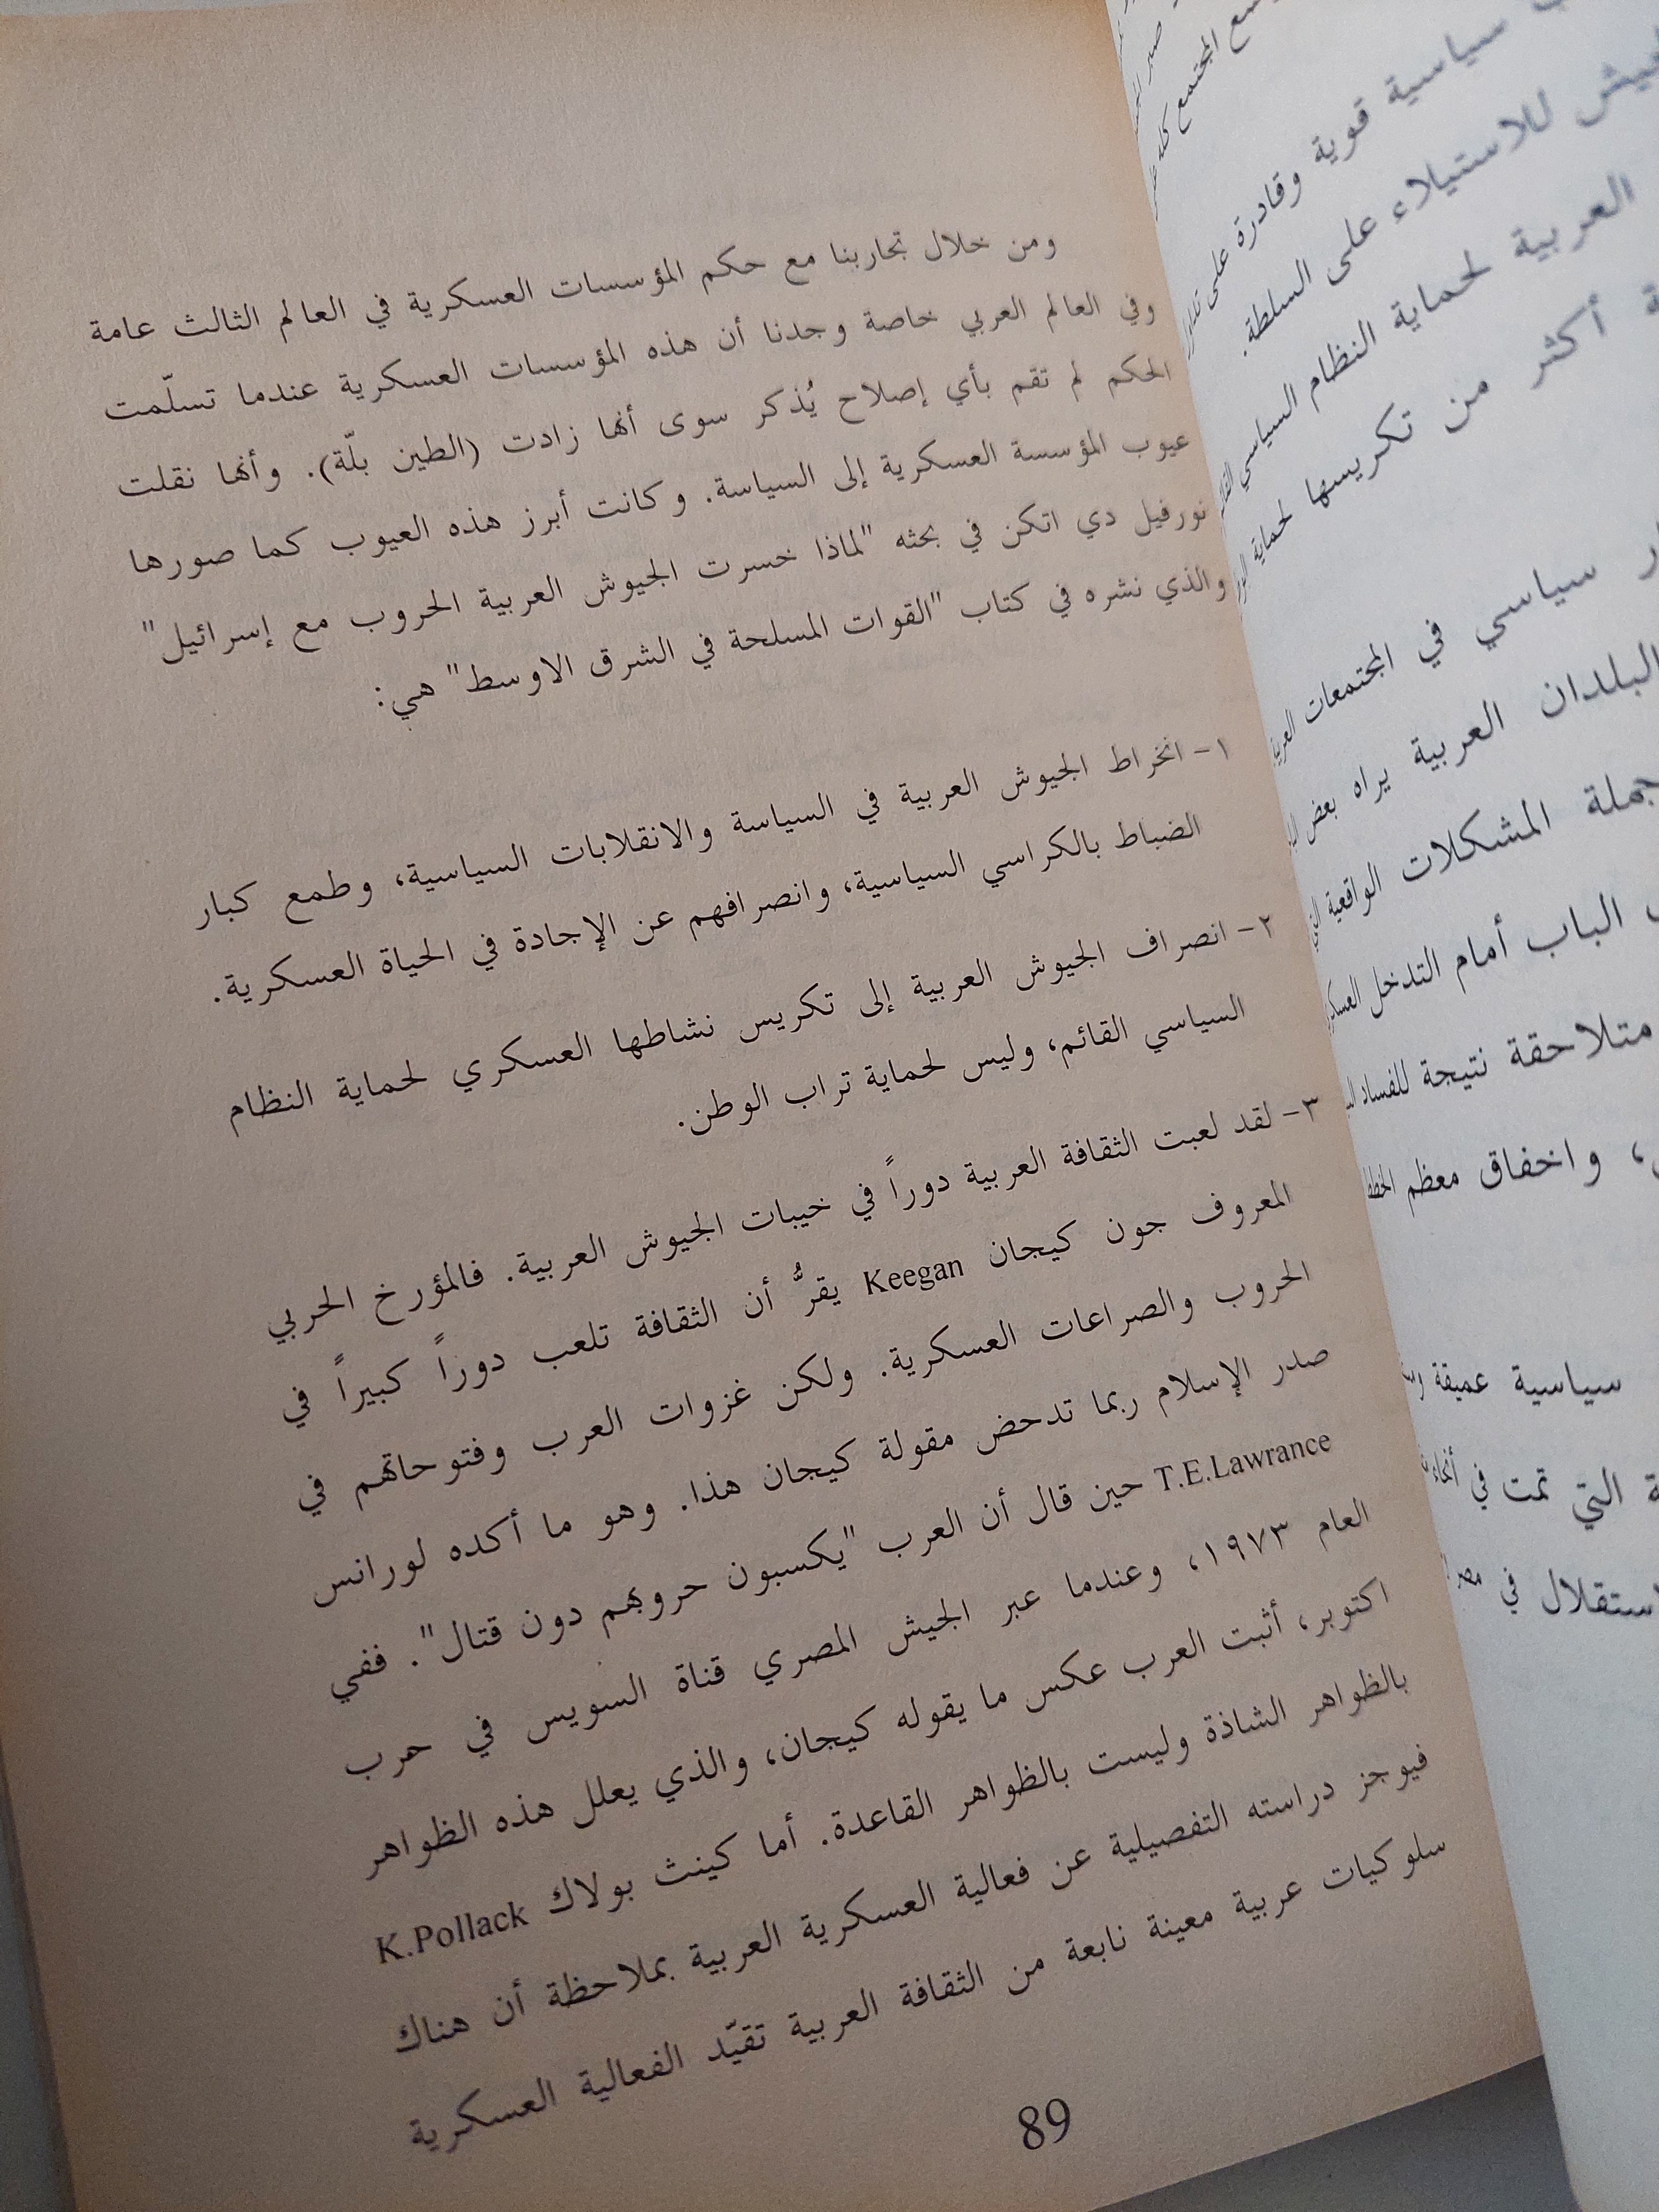 ومن خلال تجاربنا مع حكم المؤسسات العسكرية في العالم الثالث عامة
وفي العالم العربي خاصة وجدنا أن هذه المؤسسات العسكرية عندما تسلّمت
الحكم لم تقم بأي إصلاح يُذكر سوى أنها زادت (الطين بلّة). وأنها نقلت
عيوب المؤسسة العسكرية إلى السياسة. وكانت أبرز هذه العيوب كما صورها
نورفيل دي اتكن في بحثه "لماذا خسرت الجيوش العربية الحروب مع إسرائيل"
والذي نشره في كتاب "القوات المسلحة في الشرق الاوسط" هي:
١- انخراط الجيوش العربية في السياسة والانقلابات السياسية، وطمع كبار
الضباط بالكراسي السياسية، وانصرافهم عن الإجادة في الحياة العسكرية.
٢- انصراف الجيوش العربية إلى تكريس نشاطها العسكري لحماية النظام
السياسي القائم، وليس لحماية تراب الوطن.
٣- لقد لعبت الثقافة العربية دوراً في خيبات الجيوش العربية. فالمؤرخ الحربي
المعروف جون كيجان Keegan يقرُّ أن الثقافة تلعب دوراً كبيراً في
الحروب والصراعات العسكرية. ولكن غزوات العرب وفتوحاتهم في
صدر الإسلام ربما تدحض مقولة كيجان هذا. وهو ما أكده لورانس
T.E.Lawrance حين قال أن العرب "يكسبون حروبهم دون قتال". ففي
العام ١٩٧٣، وعندما عبر الجيش المصري قناة السويس في حرب
اكتوبر، أثبت العرب عكس ما يقوله كيجان، والذي يعلل هذه الظواهر
بالظواهر الشاذة وليست بالظواهر القاعدة. أما كينث بولاك K.Pollack
فيوجز دراسته التفصيلية عن فعالية العسكرية العربية بملاحظة أن هناك
سلوكيات عربية معينة نابعة من الثقافة العربية تقيّد الفعالية العسكرية
89
المجتمع كله
سياسية قوية وقادرة على
للاستيلاء على السلطة.
العربية لحماية النظام السياسي
أكثر من تكريسها لحماية
سياسي في المجتمعات
البلدان العربية يراه بعض
جملة المشكلات الواقعية
الباب أمام التدخل
متلاحقة نتيجة للفساد
واخفاق معظم
سياسية عميقة
التي تمت في
في مصر